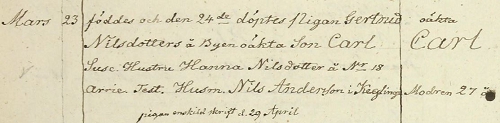 Mars 23 föddes och den 24de döptes Pigan Gertrud oäkta
Nilsdotters å Byen oäkta Son Carl Carl
Susc. Hustru Hanna Nilsdotter å Nr 18
Arrie Test. Husm. Nils Andersson i Kieglinge Modren 27 å
pigan enskild skrift d. 29 April